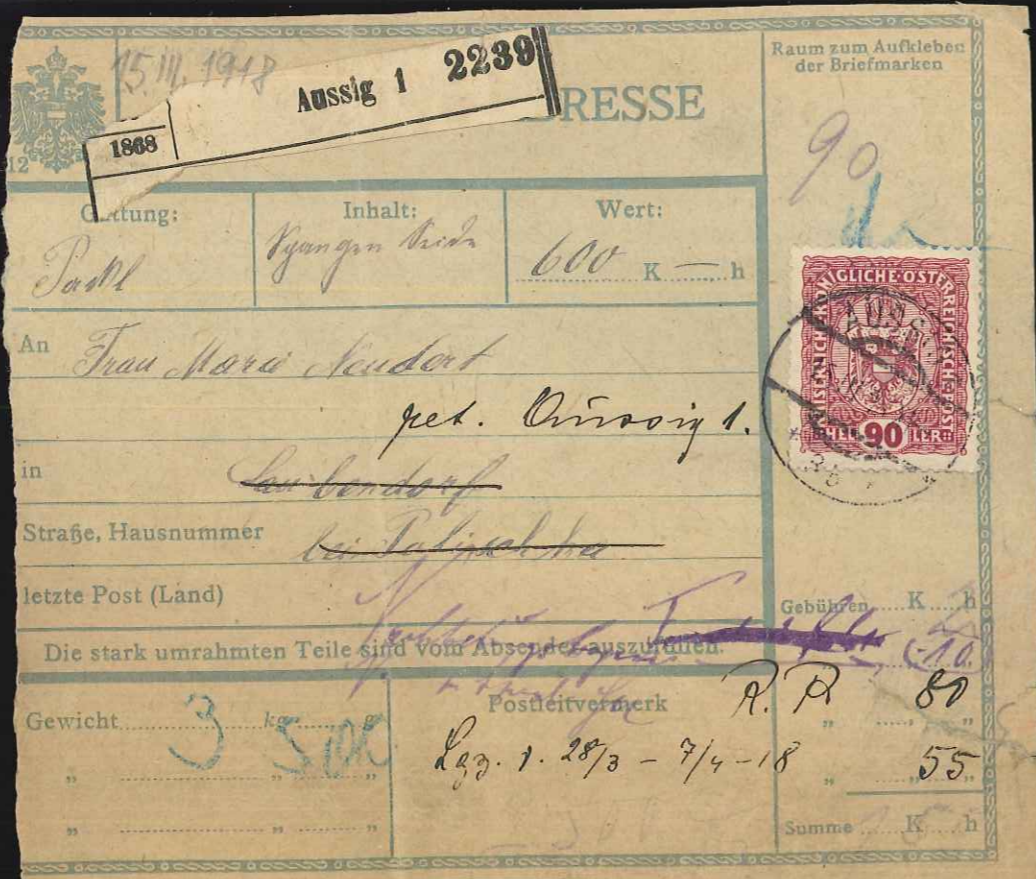 15. III. 1918
Aussig 1 2239
1868
12
DRESSE
Raum zum Aufkleben
der Briefmarken
90
Gattung:
Inhalt:
Wert:
Packl
Spangen Seide
600 K — h
KAISERLICHE KÖNIGLICHE ÖSTERREICHISCHE POST
HELLER 90
AUSSIG
An Frau Marie Neudert
ret. Aussig 1.
in Laubendorf
Straße, Hausnummer
bei
letzte Post (Land)
Gebühren K h
Die stark umrahmten Teile sind vom Absender auszufüllen.
10
Gewicht 3 kg 500 g
Postleitvermerk
R. R 80
Lgz. 1. 28/3 - 7/4 - 18
55
Summe K h